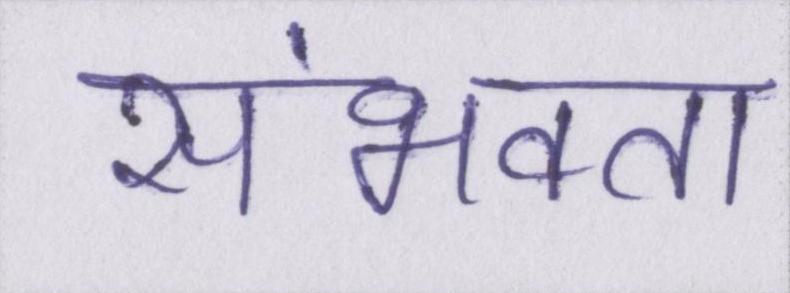 संभवता